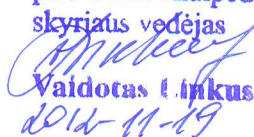 skyriaus vedėjas
Vaidotas Linkus
2012-11-19